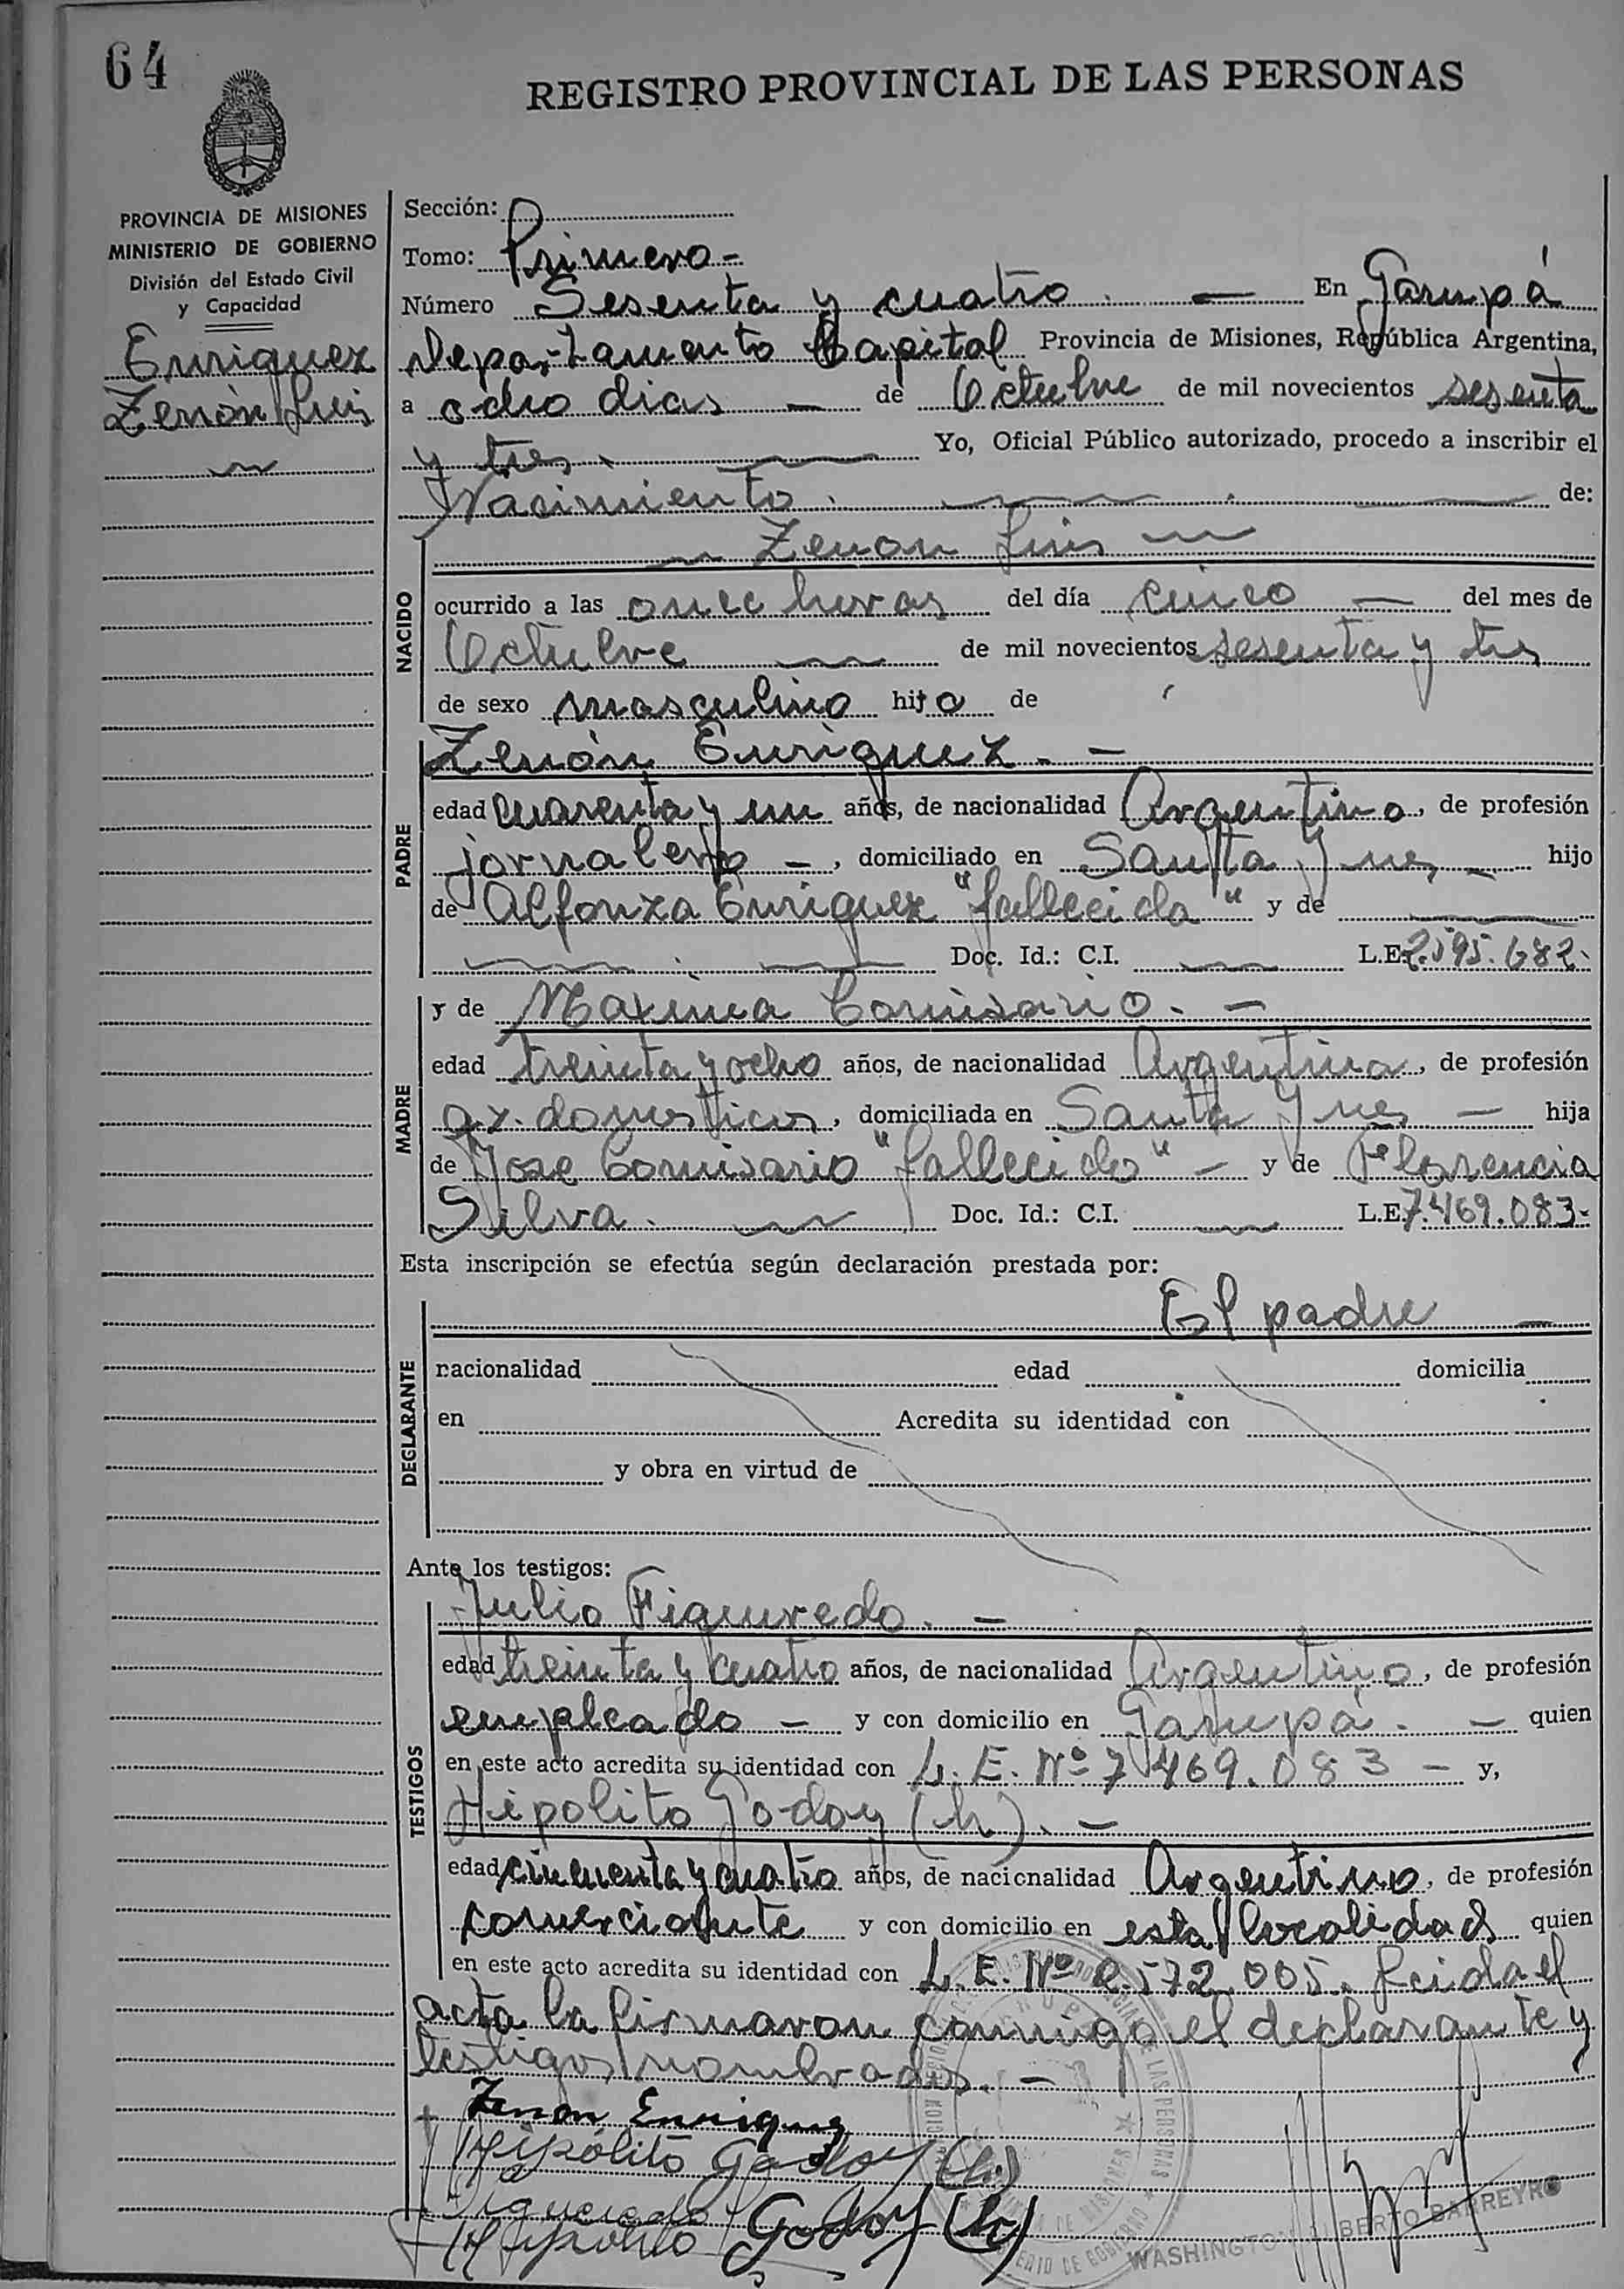 64
REGISTRO PROVINCIAL DE LAS PERSONAS
PROVINCIA DE MISIONES
MINISTERIO DE GOBIERNO
División del Estado Civil
y Capacidad
Enriquez
Zenón Luis
Sección:
Tomo: Primero -
Número Sesenta y cuatro. — En Garupá
Departamento Capital Provincia de Misiones, República Argentina,
a ocho dias — de Octubre de mil novecientos sesenta
y tres. — Yo, Oficial Público autorizado, procedo a inscribir el
Nacimiento. — de:
Zenon Luis
NACIDO
ocurrido a las once horas del día cinco — del mes de
Octubre — de mil novecientos sesenta y tres
de sexo masculino hijo de
Zenón Enriquez. —
PADRE
edad cuarenta y un años, de nacionalidad Argentino, de profesión
jornalero —, domiciliado en Santa Ynes — hijo
de Alfonza Enriquez "fallecida" y de —
— Doc. Id.: C.I. — L.E. 2.595.682.
MADRE
y de Maxima Comisario. —
edad treinta y ocho años, de nacionalidad Argentina, de profesión
q.z. domesticos, domiciliada en Santa Ynes — hija
de Jose Comisario "fallecido" — y de Florencia
Silva. — Doc. Id.: C.I. — L.E. 7.469.083-
Esta inscripción se efectúa según declaración prestada por:
El padre —
DECLARANTE
nacionalidad edad domicilia
en Acredita su identidad con
y obra en virtud de
Ante los testigos:
TESTIGOS
Julio Figueredo. —
edad treinta y cuatro años, de nacionalidad Argentino, de profesión
empleado — y con domicilio en Garupá. — quien
en este acto acredita su identidad con L. E. Nº 7.469.083 — y,
Hipolito Godoy (h). —
edad cincuenta y cuatro años, de nacionalidad Argentino, de profesión
comerciante y con domicilio en esta localidad quien
en este acto acredita su identidad con L. E. Nº 2.572.005. Leida el
acta la firmaron conmigo el declarante y
testigos nombrados. —
Zenon Enriquez
Hipólito Godoy (h)
Figueredo
Hipolito Godoy (h)
WASHINGTON ALBERTO BARREYRO